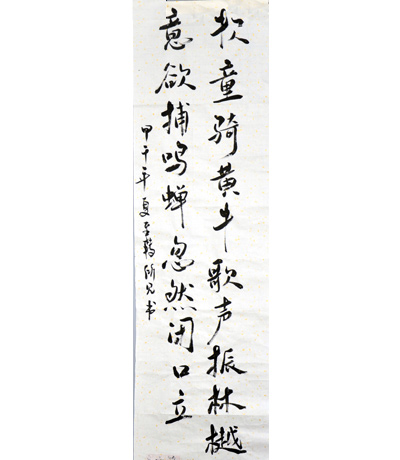 牧童骑黄牛歌声振林樾
意欲捕鸣蝉忽然闭口立
甲午年夏至